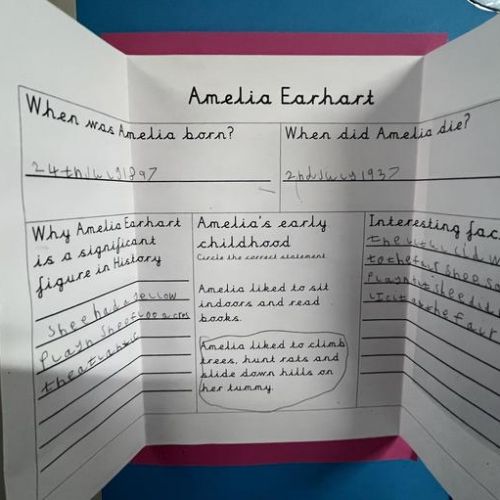 Amelia Earhart
When was Amelia born?
24th July 1897
When did Amelia die?
2nd July 1937
Why Amelia Earhart
is a significant
figure in History
shee had a yellow
playn shee floo acros
the atlantic
Amelia's early
childhood
Circle the correct statement
Amelia liked to sit
indoors and read
books.
Amelia liked to climb
trees, hunt rats and
slide down hills on
her tummy.
Interesting fac
to the fair shee
playn
at the fair